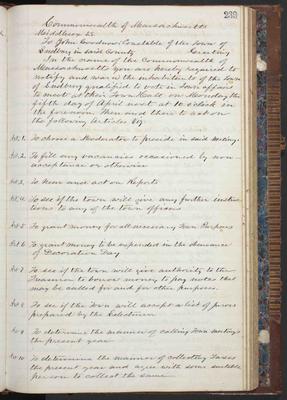 239
Commonwealth of Massachusetts
Middlesex SS.
To John Goodnow Constable of the Town of
Sudbury in said County Greeting
In the name of the Commonwealth of
Massachusetts you are hereby required to
notify and warn the inhabitants of the Town
of Sudbury qualified to vote in Town affairs
to meet at their Town Hall on Monday the
fifth day of April next at 10 o'clock in
the forenoon, Then and there to act on
the following Articles viz:
Art. 1. To choose a Moderator to preside in said meeting.
Art. 2. To fill any vacancies occasioned by non
acceptance or otherwise.
Art. 3. To hear and act on Reports
Art. 4. To see if the town will give any further instruc-
tions to any of the town officers
Art. 5. To grant money for all necessary Town Purposes
Art. 6. To grant money to be expended in the observance
of Decoration Day
Art. 7. To see if the town will give authority to the
Treasurer to borrow money to pay notes that
may be called for and for other purposes.
Art. 8. To see if the Town will accept a list of jurors
prepared by the Selectmen
Art. 9. To determine the manner of calling Town meetings
the present year
Art. 10. To determine the manner of collecting Taxes
the present year and agree with some suitable
person to collect the same